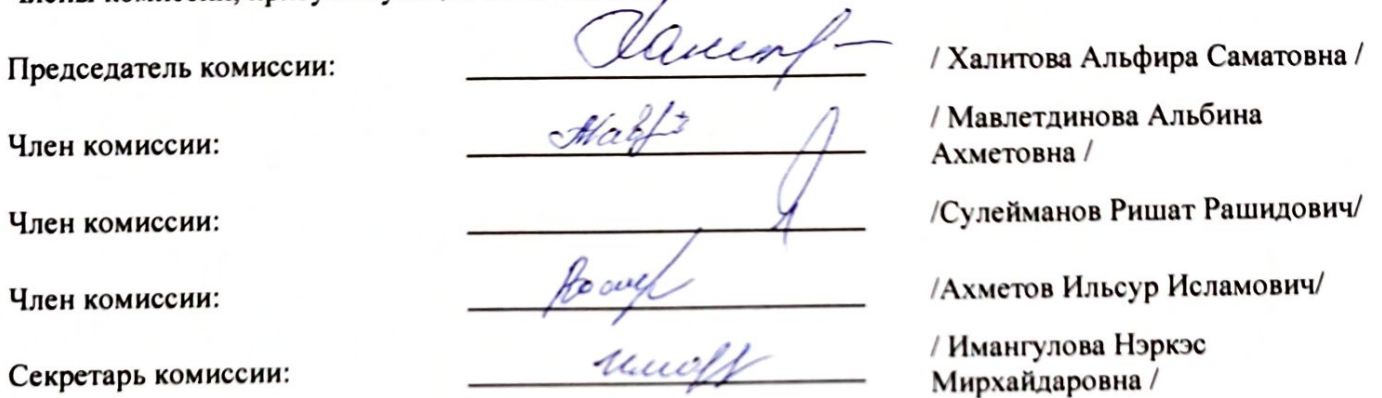 Председатель комиссии: / Халитова Альфира Саматовна /
Член комиссии: / Мавлетдинова Альбина
Ахметовна /
Член комиссии: /Сулейманов Ришат Рашидович/
Член комиссии: /Ахметов Ильсур Исламович/
Секретарь комиссии: / Имангулова Нэркэс
Мирхайдаровна /